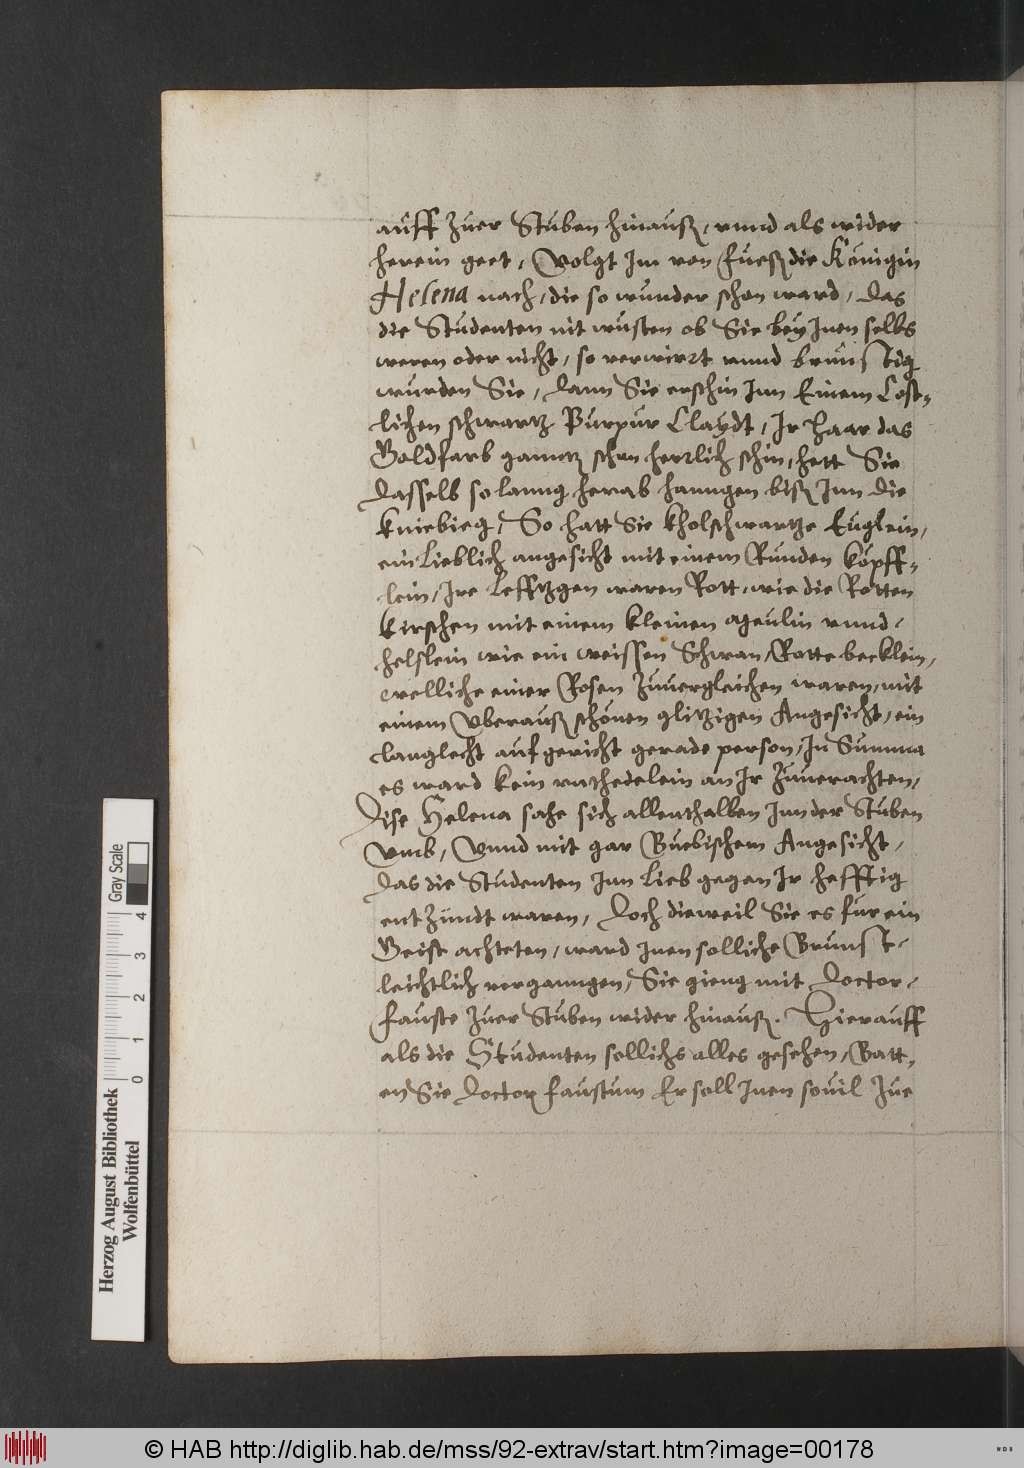 auff Zuer Stuben hinauß, vnnd als wider
herein geet, Volgt Im von fueß die Königin
Helena nach, die so wunder schon ward, das
die Studenten nit wusten ob Sie bey Inen selbs
weren oder nicht, so verwirrt vnnd brunstig
wurden Sie, dann Sie erschin Inn Einem Cost-
lichen schwartz Purpur Claydt, Ir Haar das
Goldfarb ganntz schon herrlich schin, hett Sie
dasselb so lanng herab hanngen biß Inn die
kniebieg, So hatt Sie kholschwartze Euglein,
ein Lieblich angesicht mit einem Runden köpff-
lein, Ire Lefftzgen waren Rott, wie die Rotten
Kirschen mit einem kleinen Meulin vnnd
helslein wie ein weissen Schwan, Rotte becklein,
welliche einer Rosen Zuuergleichen waren, mit
einem Vberauß schönen glitzigen Angesicht, ein
langlecht auf gericht gerade person, In Summa
es ward kein vnthedelein an Ir Zuuerachten,
Dise Helena sahe sich allenthalben Inn der Stuben
vmb, Vnnd mit gar Buebischem Angesicht,
das die Studenten Inn Lieb gegen Ir hefftig
ent Zündt waren, Doch dieweil Sie es fur ein
Geist achteten, ward Inen solliche Brunst
leichtlich vergangen, Sie gieng mit Doctor
Fauste Zuer Stuben wider hinauß. Hierauff
als die Studenten sollichs alles gesehen, Batt-
en Sie Doctor Faustum Er soll Inen souil Zue
Herzog August Bibliothek
Wolfenbüttel
Gray Scale
0 1 2 3 4
© HAB http://diglib.hab.de/mss/92-extrav/start.htm?image=00178